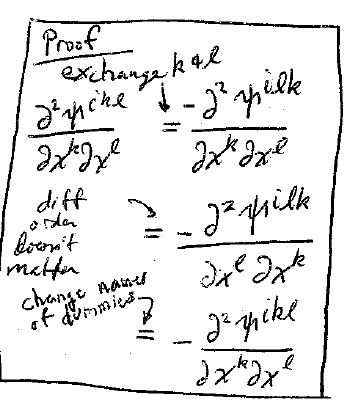 Proof
exchange k & l
∂²ψ^{ikl} / ∂x^k ∂x^l = -∂²ψ^{ilk} / ∂x^k ∂x^l
diff order doesn't matter
= - ∂²ψ^{ilk} / ∂x^l ∂x^k
change names of dummies
= - ∂²ψ^{ikl} / ∂x^k ∂x^l